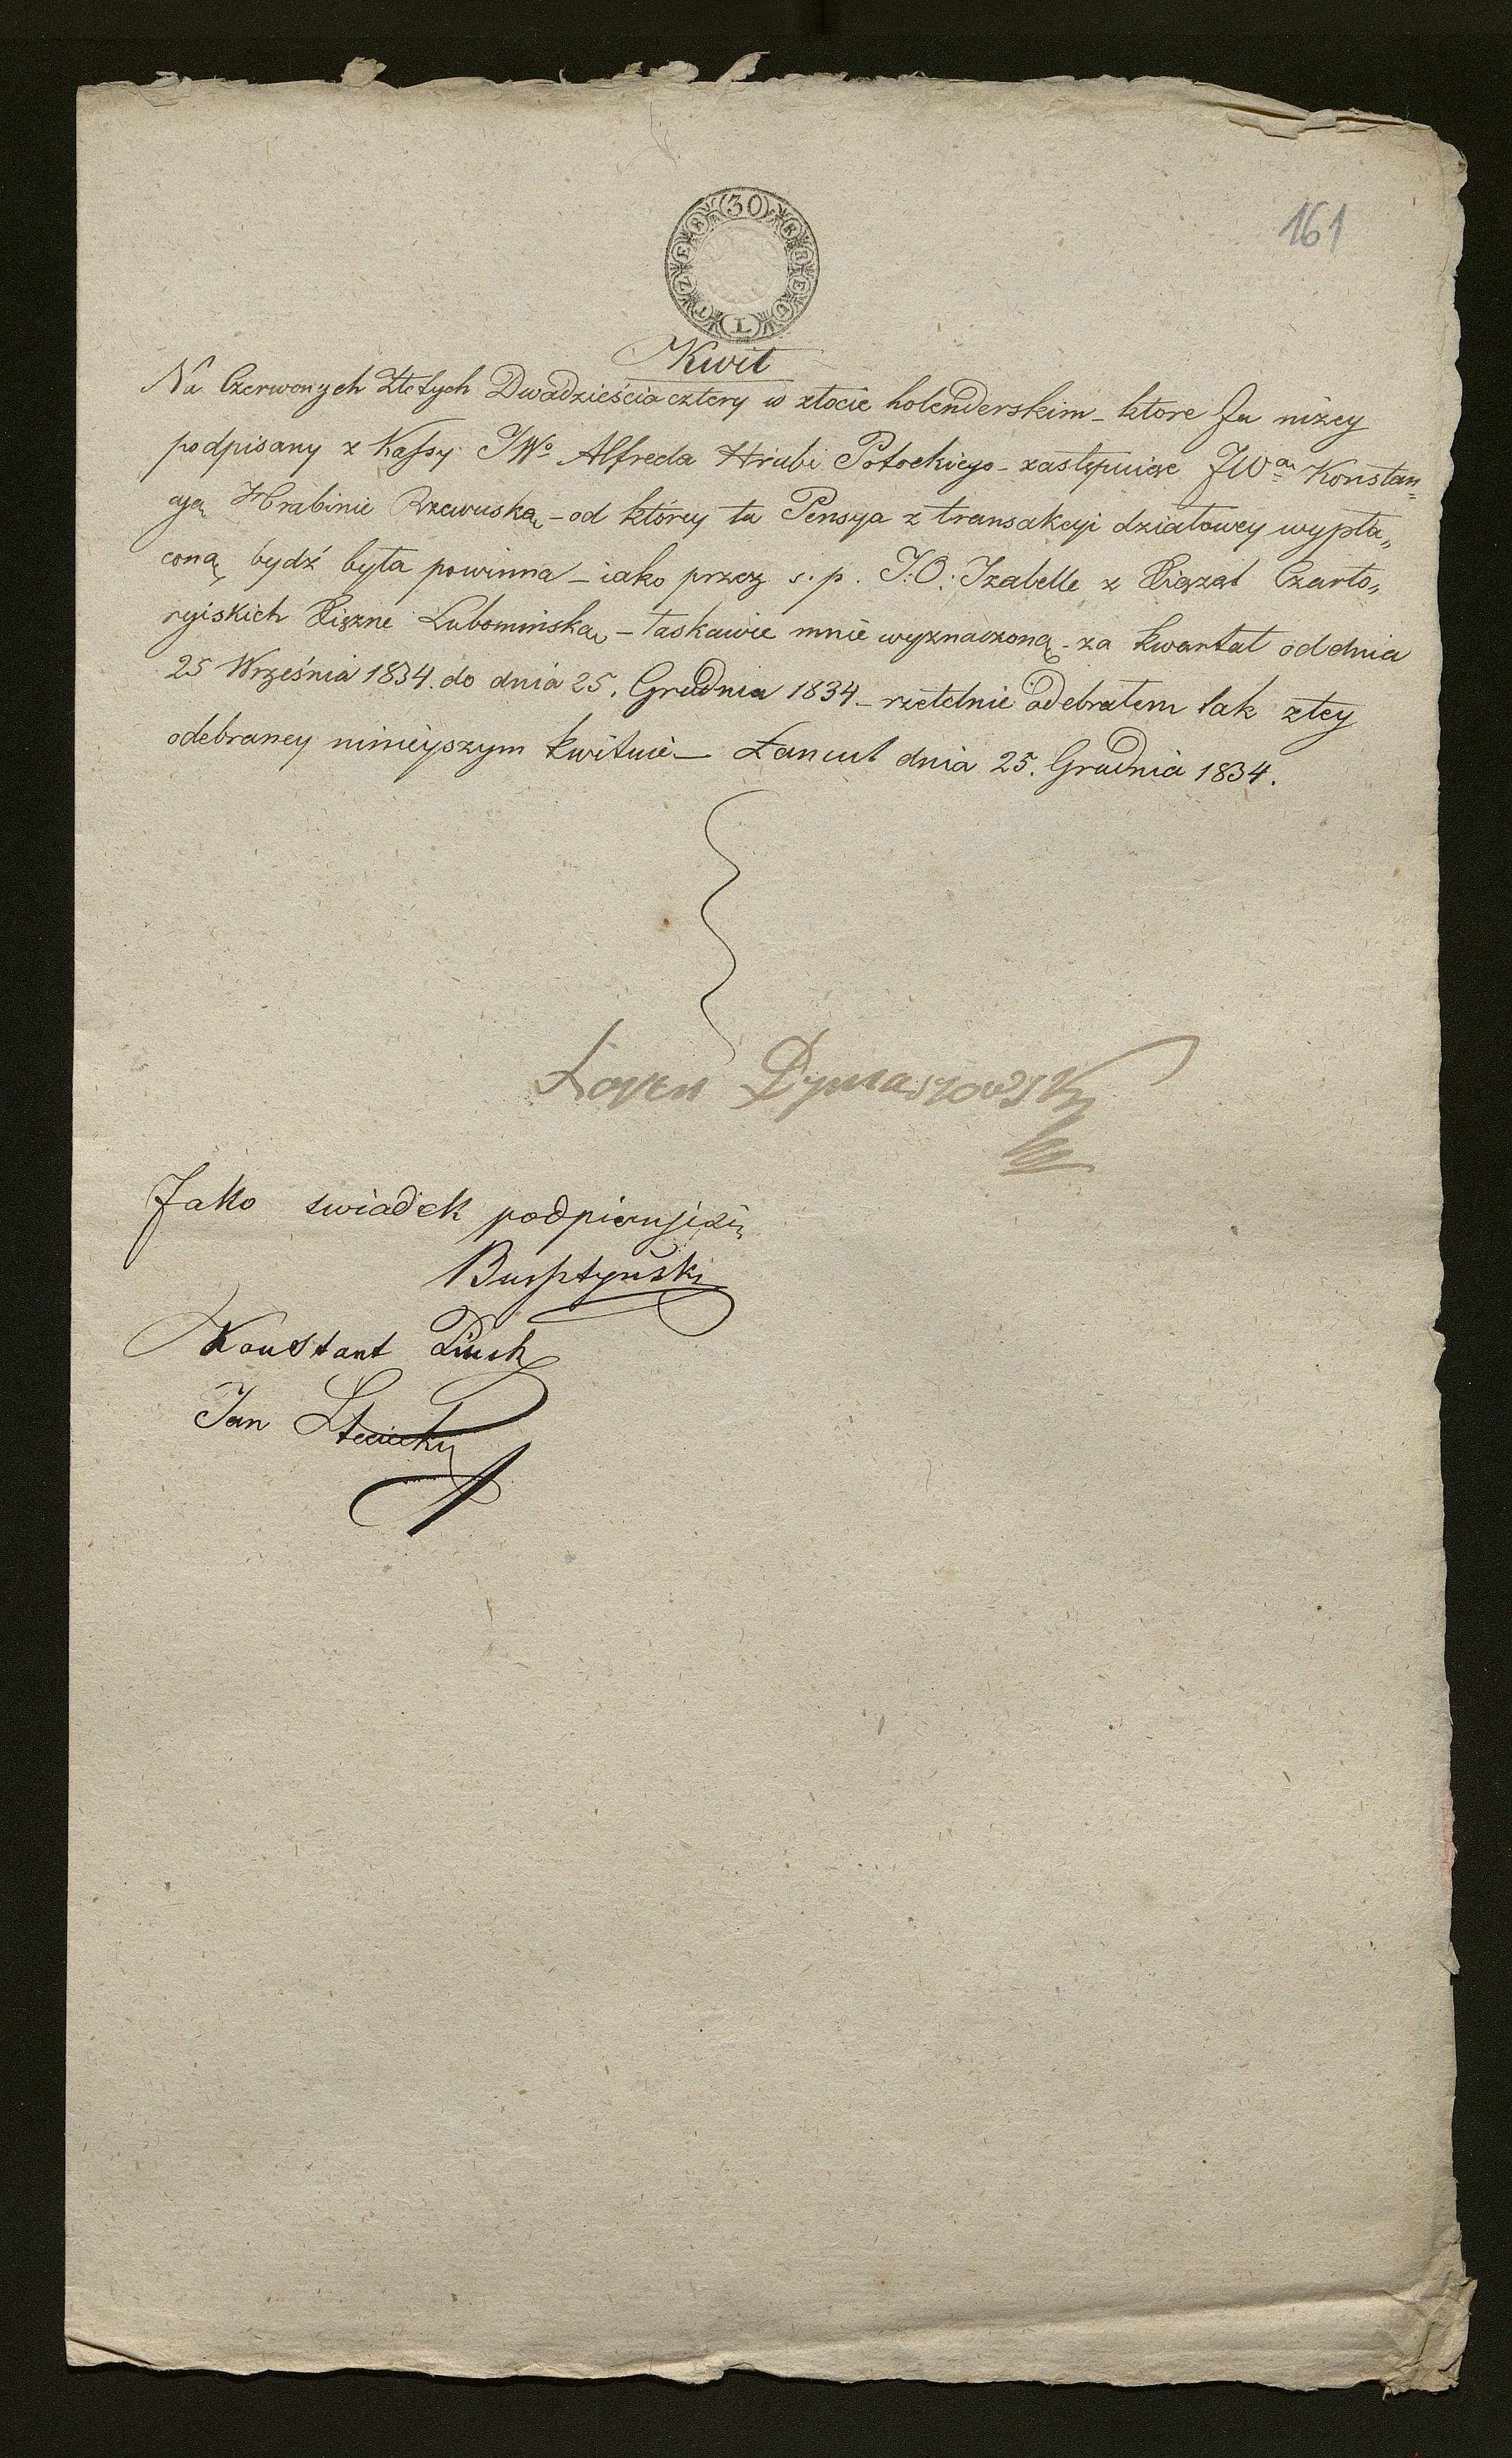 161
30 KREUTZER
Kwit
Na Czerwonych Złotych Dwadzieścia cztery w złocie holenderskim – które Ja niżey
podpisany z Kassy JWo Alfreda Hrabi Potockiego – zastępuiąc JWą Konstan=
cyą Hrabinie Rzewuską – od którey ta Pensya z transakcyi działowey wypła„
coną bydź była powinna – iako przez s. p. J: O: Izabellę z Xiążąt Czarto„
ryiskich Xiężnę Lubomirską – łaskawie mnie wyznaczoną – za kwartał od dnia
25 Września 1834. do dnia 25. Grudnia 1834 – rzetelnie odebrałem tak z tey
odebraney ninieyszym kwituię – Łancut dnia 25. Grudnia 1834.
Dymaszowsky
Jako swiadek podpisuje się
Konstant
Jan Stecicky